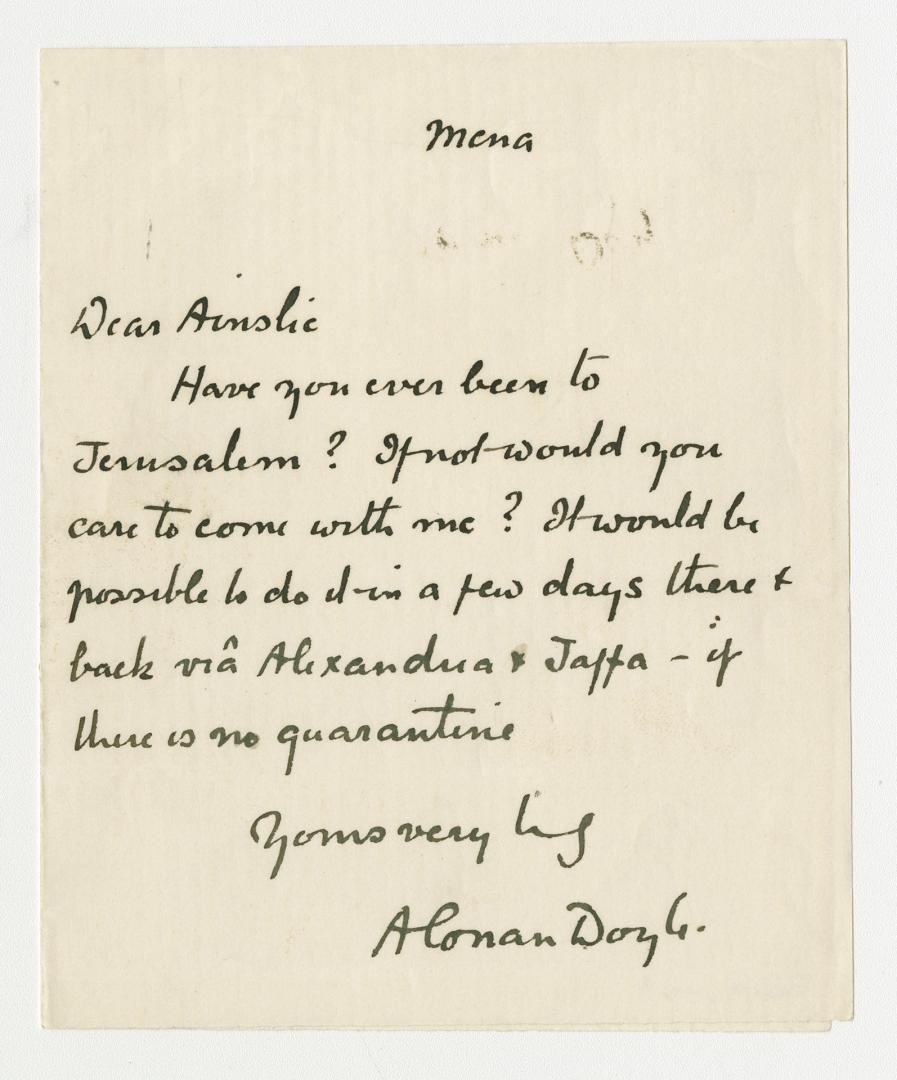 Mena
Dear Ainslie
Have you ever been to
Jerusalem? If not would you
care to come with me? It would be
possible to do it in a few days there &
back viâ Alexandria & Jaffa - if
there is no quarantine
Yours very
A Conan Doyle.